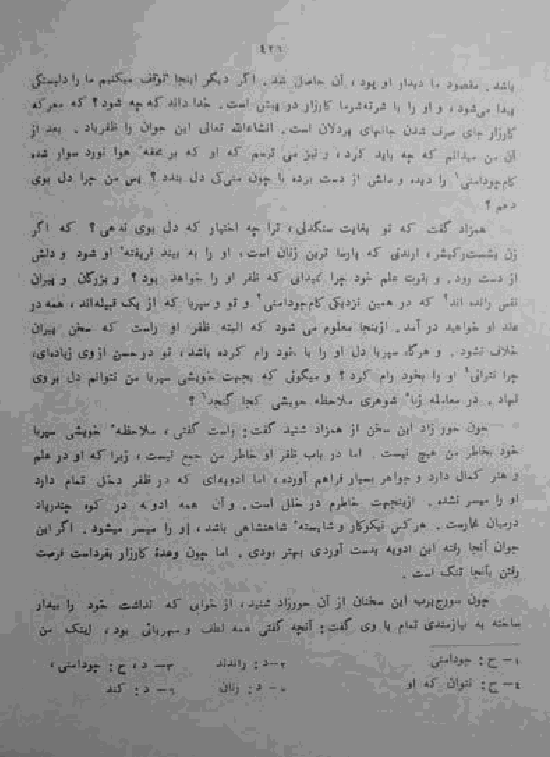 باشد. مقصود ما دیدار او بود، آن حاصل شد. اگر دیگر اینجا توقف میکنیم ما را دلبستگی
پیدا می‌شود، و او را با شما کارزار در پیش است. خدا داند که چه شود؟ که معرکه
کارزار جای صرف شدن جانهای پردلان است. انشاءالله تعالی این جوان را ظفر باد. بعد از
آن من میدانم که چه باید کرد، و نیز می ترسم که او که بر محفه هوا نورد سوار شده
کام‌جودامنی را دیده و دلش از دست برده با چون منی کی دل بندد؟ پس من چرا دل بوی
دهم؟
همزاد گفت که تو بغایت سنگدلی، ترا چه اختیار که دل بوی ندهی؟ که اگر
زن که پارسا ترین زنان است، او را به بیند فریفته او شود و دلش
از دست رود. و بقوت علم خود چرا نمیدانی که ظفر او را خواهد بود؟ و بزرگان و پیران
نفس رانده اند که در همین نزدیکی کام‌جودامنی و تو و سپربا که از یک قبیله‌اند، همه در
عقد او خواهید در آمد. ازینجا معلوم می شود که البته ظفر او راست که سخن پیران
خلاف نشود. و هرگاه سپربا دل او را با خود رام کرده باشد، تو در حسن از وی زیاده‌ای،
چرا نتوانی او را بخود رام کرد؟ و میگوئی که بجهت خویشی سپربا من نتوانم دل بر وی
نهاد. در معامله زنا شوهری ملاحظه خویشی کجا گنجد؟
چون حور زاد این سخن از همزاد شنید گفت: راست گفتی، ملاحظه خویشی سپربا
خود بخاطر من هیچ نیست. اما در باب ظفر او خاطر من جمع نیست، زیرا که او در علم
و هنر کمال دارد و جواهر بسیار فراهم آورده، اما ادویه‌ای که در ظفر دخل تمام دارد
او را میسر نشد. ازینجهت خاطرم در خلل است. و آن همه ادویه در کوه چندرپاد
درمیان غاریست. هر کس نیکوکار و شایسته شاهنشاهی باشد، او را میسر میشود. اگر این
جوان آنجا رفته این ادویه بدست آوردی بهتر بودی. اما چون وعدهٔ کارزار بفرداست فرصت
رفتن بآنجا تنگ است.
چون سورج‌پرب این سخنان از آن حورزاد شنید، از خوابی که نداشت خود را بیدار
ساخته به نیازمندی تمام با وی گفت: آنچه گفتی همه لطف و مهربانی بود، لیکن من
۱- ج: جودامنی ۲- د: راندند ۳- د، ج: جودامنی،
۴- ج: نتوان که او ۵- د: زنان ۶- د: کند